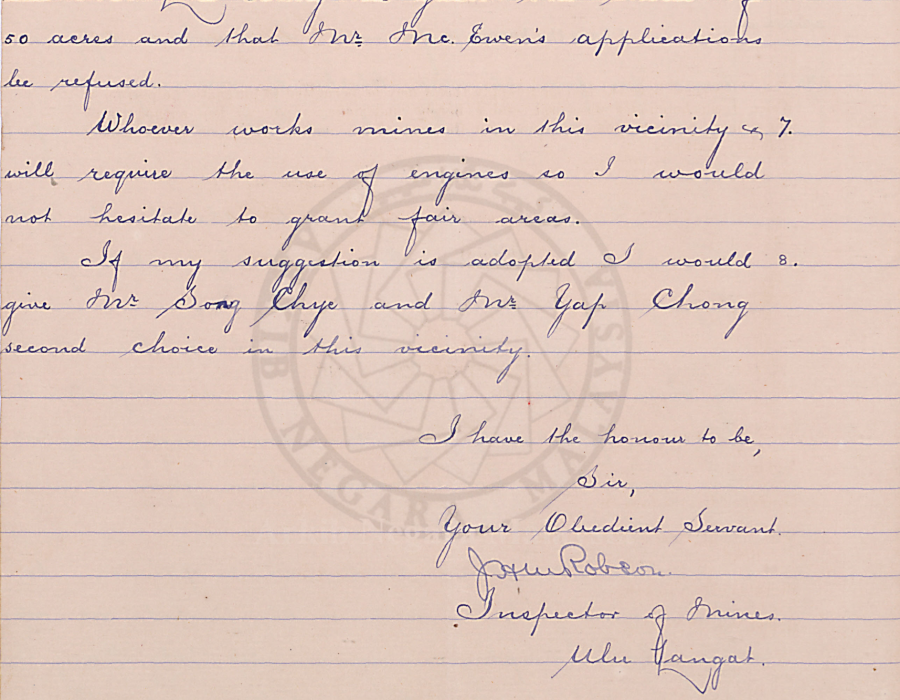 50 acres and that Mr. Mc. Ewen's applications
be refused.
Whoever works mines in this vicinity 7.
will require the use of engines so I would
not hesitate to grant fair areas.
If my suggestion is adopted I would 8.
give Mr. Song Chye and Mr. Yap Chong
second choice in this vicinity.
I have the honour to be,
Sir,
Your Obedient Servant.
JHMRobson.
Inspector of Mines.
Ulu Langat.
ARKIB NEGARA MALAYSIA